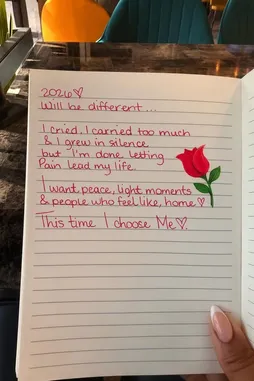 2026♡
Will be different...
I cried, I carried too much
& I grew in silence
but I'm done letting
Pain lead my life.
I want, peace, light moments
& people who feel like, home♡
This time I choose Me♡.